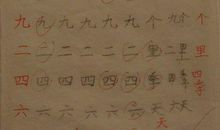 九 九 九 九 九 九 个 九个 个
二 二 二 二 二 二 里 二里 里
四 四 四 四 四 四 季 四季 四季
六 六 六 六 六 六 天 六天
天